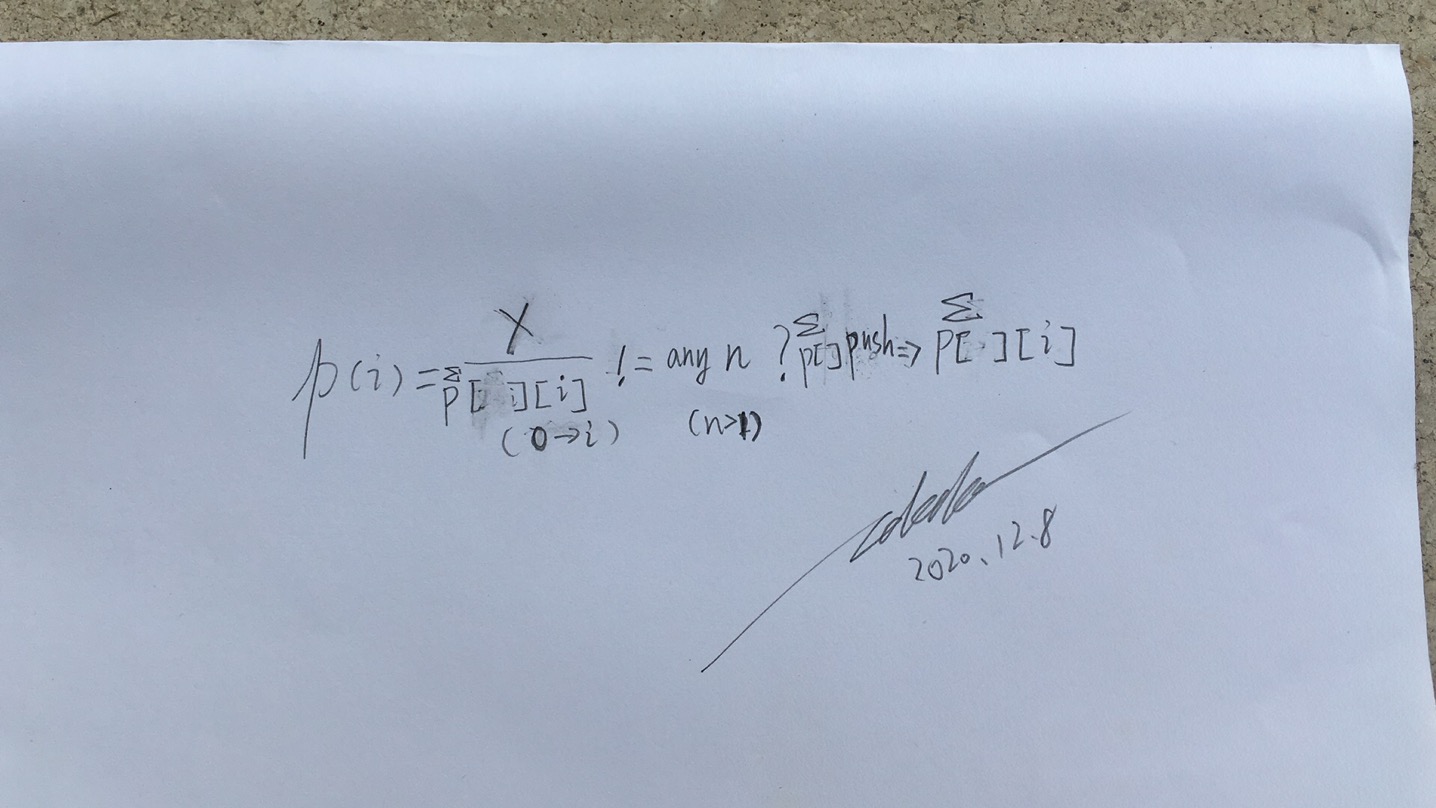 X
p(i) = Σ P[ i][i] != any n ? Σ P[] push => Σ P[ ][i]
(0→i) (n>1)
2020.12.8